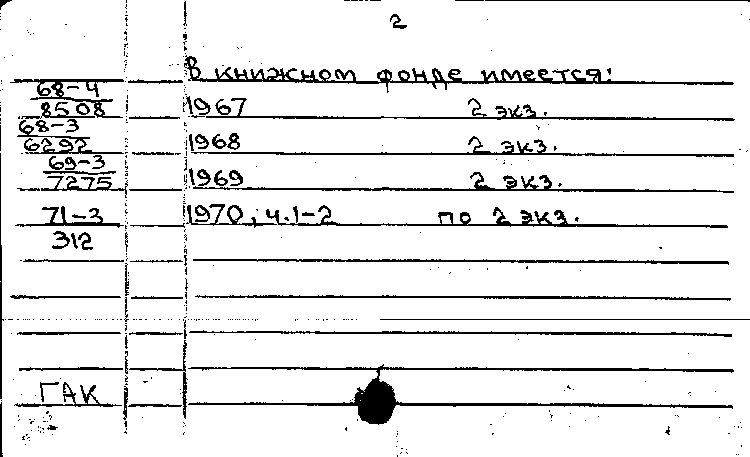 2
В книжном фонде имеется:
68-4
8508 1967 2 экз.
68-3
6292 1968 2 экз.
69-3
7275 1969 2 экз.
71-3 1970, ч.1-2 по 2 экз.
312
ГАК